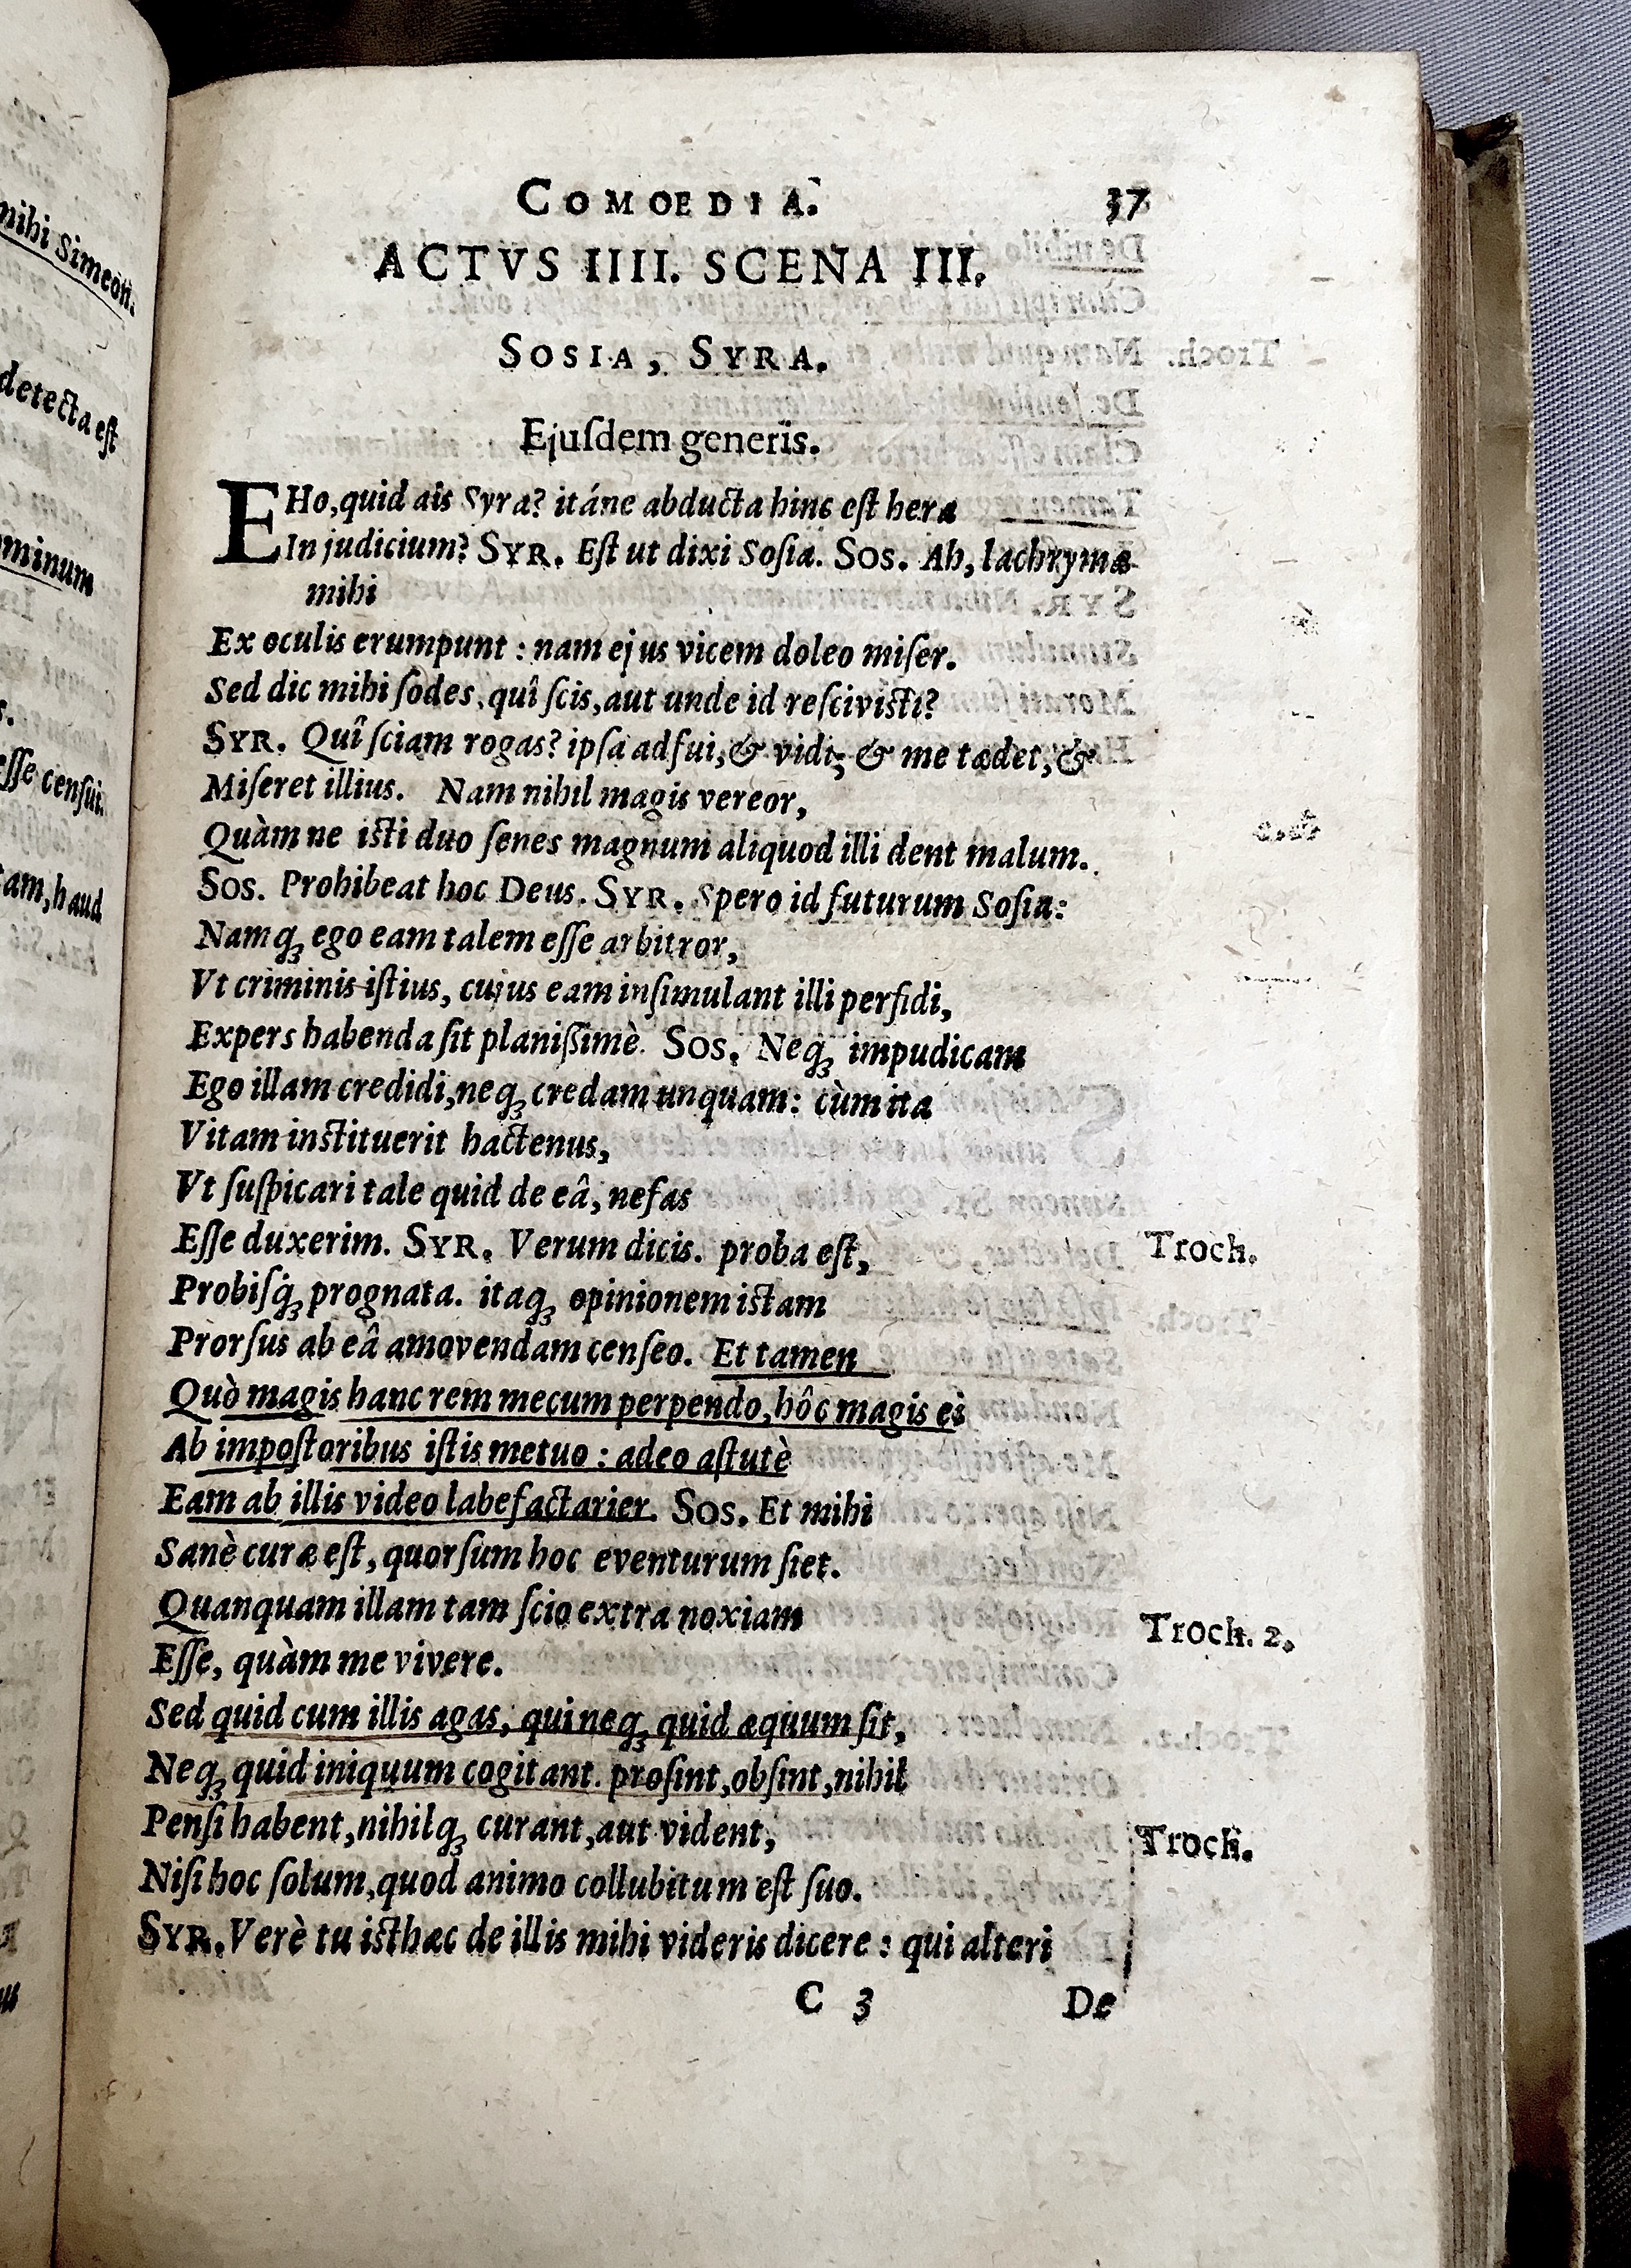 mihi Simeon.
detecta eſt
ominum
eſſe cenſui.
tam, haud
COMOEDIA. 37
ACTVS IIII. SCENA III.
SOSIA, SYRA.
Ejuſdem generis.
EHo, quid ais Syra? itáne abducta hinc eſt hera
In judicium? SYR. Eſt ut dixi Soſia. SOS. Ah, lachrymæ
mihi
Ex oculis erumpunt : nam ejus vicem doleo miſer.
Sed dic mihi ſodes, quî ſcis, aut unde id reſcivisti?
SYR. Quî ſciam rogas? ipſa adfui, & vidi; & me tædet, &
Miſeret illius. Nam nihil magis vereor,
Quàm ne isti duo ſenes magnum aliquod illi dent malum.
SOS. Prohibeat hoc Deus. SYR. Spero id futurum Soſia:
Namq; ego eam talem eſſe arbitror,
Vt criminis iſtius, cujus eam inſimulant illi perfidi,
Expers habenda ſit planiſſimè. SOS. Neq; impudicam
Ego illam credidi, neq; credam unquam: cùm ita
Vitam instituerit hactenus,
Vt ſuſpicari tale quid de eâ, nefas
Eſſe duxerim. SYR. Verum dicis. proba eſt, Troch.
Probiſq́; prognata. itaq; opinionem istam
Prorſus ab eâ amovendam cenſeo. Et tamen
Quò magis hanc rem mecum perpendo, hôc magis ei
Ab impoſtoribus iſtis metuo : adeo aſtutè
Eam ab illis video labefactarier. SOS. Et mihi
Sanè curæ eſt, quorſum hoc eventurum ſiet.
Quanquam illam tam ſcio extra noxiam Troch. 2.
Eſſe, quàm me vivere.
Sed quid cum illis agas, qui neq; quid æquum ſit,
Neq; quid iniquum cogitant. proſint, obſint, nihil
Penſi habent, nihilq; curant, aut vident, Troch.
Niſi hoc ſolum, quod animo collubitum eſt ſuo.
SYR. Verè tu isthæc de illis mihi videris dicere : qui alteri
C 3 De